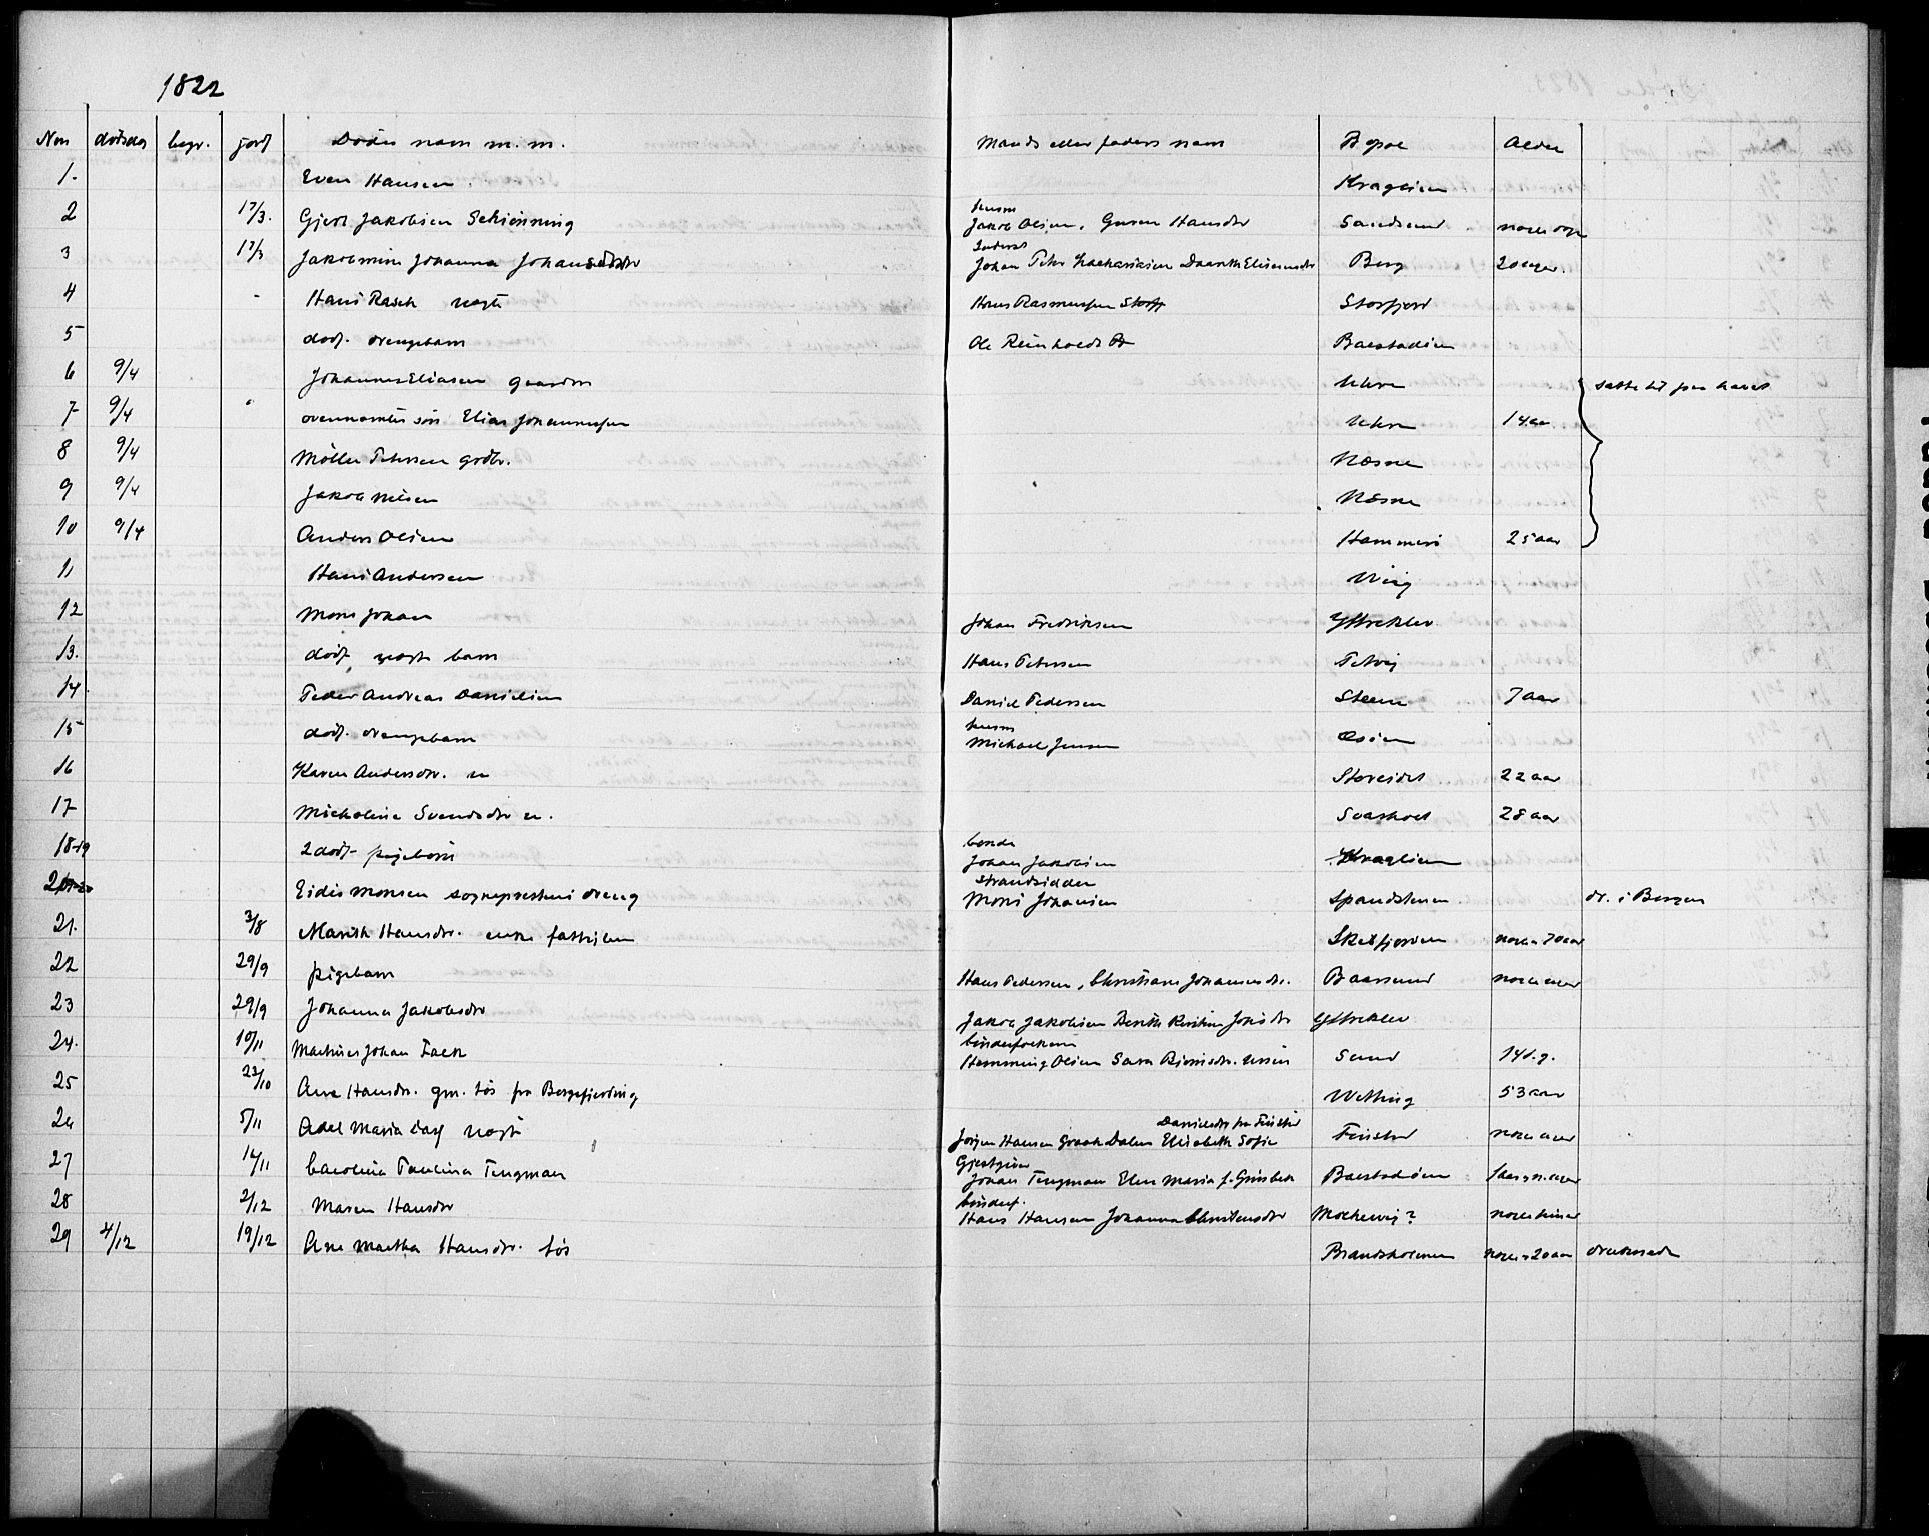 1822
Non dødsdag begr. jordf Dødes navn m.m. Mands eller faders navn Bopæl Alder
1. Even Hansen. Kraglien
2 17/3. Gjert Jakobsen Schiønning husm Jakob Olsen, Guren Hansdtr Sandsund
3 17/3 Jakobmine Johanna Johansdtr Inderst Johan Peter Zachariasen Daarthe Elisa Berg 20 uger.
4 Hans Rasch uægte Hans Rasmussen Storfjord
5 dødf. drengebarn Ole Reinholdt Bælstadien
6 9/4 Johannes Eliasen gaardm Uhrn satte til paa havet
7 9/4 ovennævntes søn Elias Johannessen Uhrn 14 aar
8 9/4 Møller Petersen grdbr. Næsne
9 9/4 Jakob Nilsen Næsne
10 9/4 Anders Olsen Hammerø 25 aar
11 Hans Andersen Wiig
12 Mons Johan Johan Fredriksen Yttreklev
13. dødf uægte barn Hans Petersen Tetvig
14. Peder Andreas Danielsen Daniel Pedersen Steene 7 aar
15 dødf. drengebarn husm Michael Jensen
16 Karen Andersdtr. u Storeidet 22 aar
17 Micheline Svendsdtr u. Svartholt 28 aar
18-19 2 dødf. pigebørn bonde Johan Jakobsen Kraglien
20 Eidis Monsen sogneprestens dreng Strandsidder Mons Johansen Spandstenen dr. i Bergen
21. 3/8 Marith Hansdtr. enke fattiglem Skatfjorden noen 70 aar
22 29/9 pigebarn Hans Pedersen, Christiane Johannesdtr. Baarsund noen uger
23 29/9 Johanna Jakobsdtr Jakob Jakobsen Berith Kirstine Jonsdtr Yttreklev
24. 10/11 Mathias Johan Falck bønderfolkene Hemming Olsen Sara Bjørnsdtr. Ursin Sund 14 d. g.
25 23/10 Ane Hansdr. gm. tøs fra Bergsfjerding Wetting 53 aar
26 5/11 Adel Maria Dass uægte Jørgen Hansen Graah Dalen Elisabeth Sofie Danielsdtr fra Finstad noen uger
27 14/11 Carolina Paulina Tengman Gjestgiver Johan Tengman Elen Maria f. Grinbek Bælstadøen
28 2/12 Maren Hansdtr bønderf. Hans Hansen Johanna Christensdtr Molkevig? noen timer
29 4/12 19/12 Ane Martha Hansdtr. tøs Brandsholmen noen 20 aar druknede